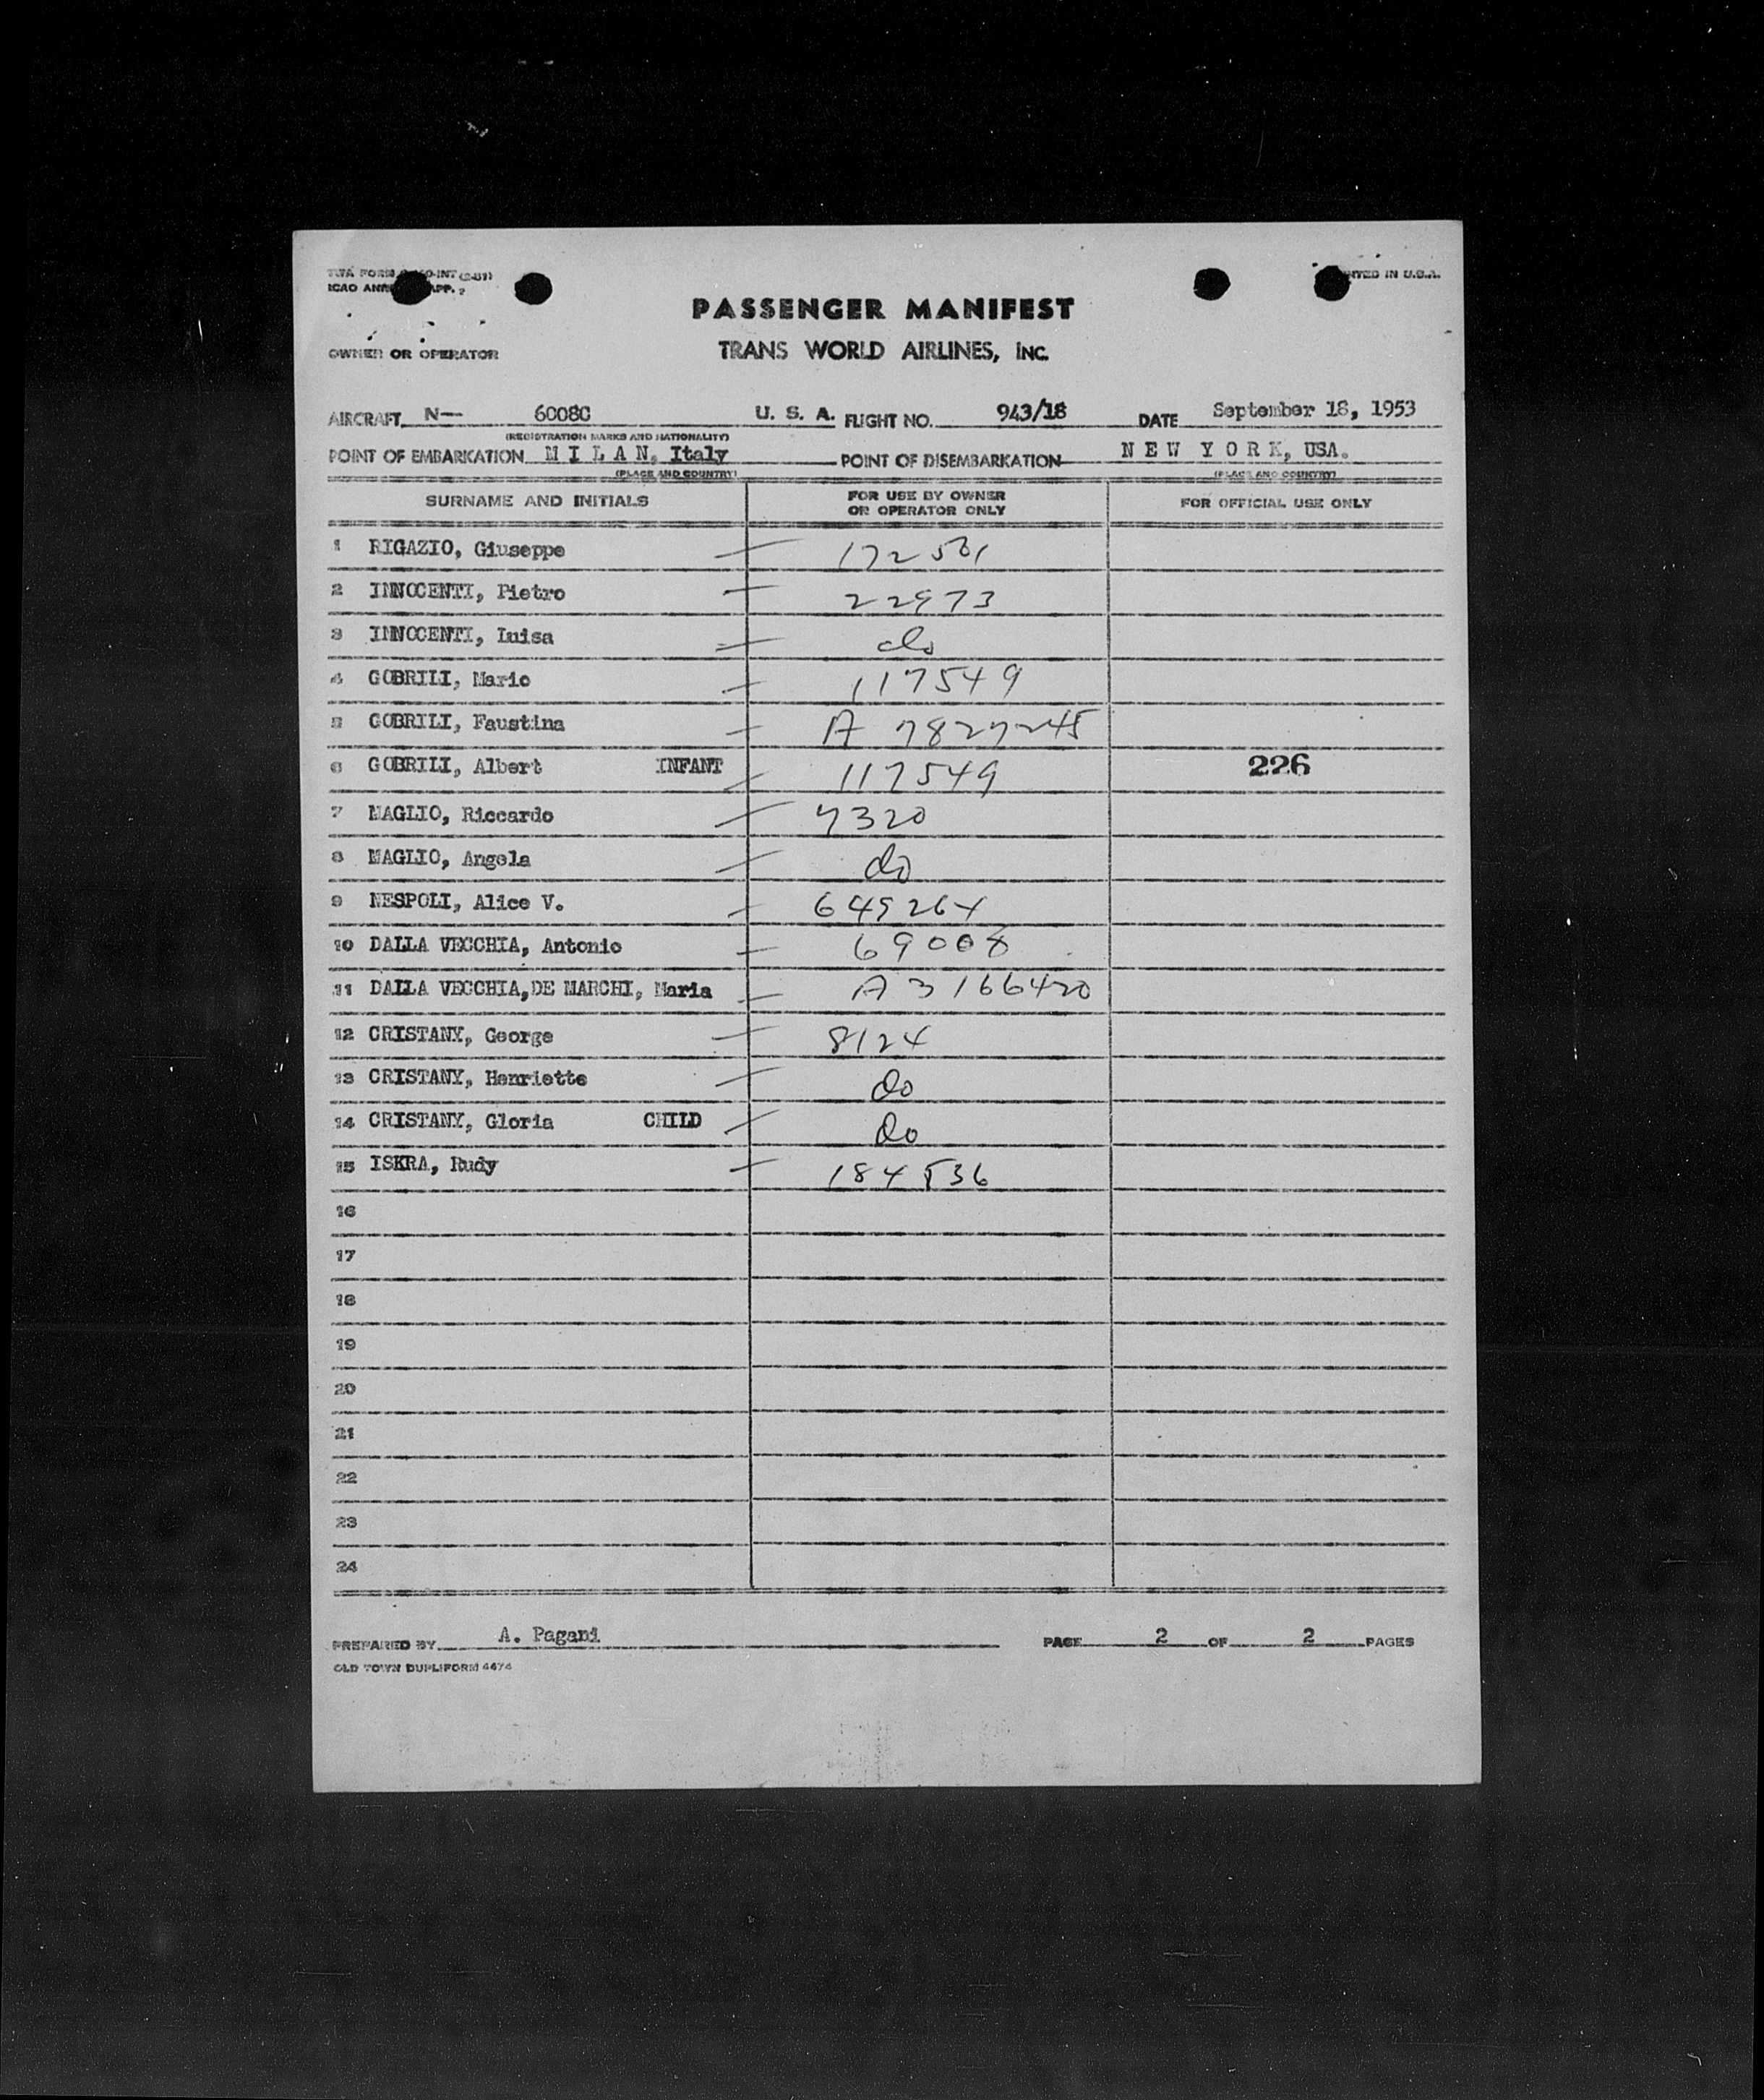 TWA FORM
ICAO ANN APP. 2
PRINTED IN U.S.A.
PASSENGER MANIFEST
OWNER OR OPERATOR TRANS WORLD AIRLINES, INC.
AIRCRAFT N— 6008C U. S. A. FLIGHT NO. 943/18 DATE September 18, 1953
(REGISTRATION MARKS AND NATIONALITY)
POINT OF EMBARKATION M I L A N, Italy POINT OF DISEMBARKATION N E W Y O R K, USA.
(PLACE AND COUNTRY) (PLACE AND COUNTRY)
SURNAME AND INITIALS FOR USE BY OWNER OR OPERATOR ONLY FOR OFFICIAL USE ONLY
1 RIGAZIO, Giuseppe — 172501
2 INNOCENTI, Pietro — 22973
3 INNOCENTI, Luisa — do
4 GOBRILI, Mario — 117549
5 GOBRILI, Faustina — A 7827245
6 GOBRILI, Albert INFANT — 117549 226
7 MAGLIO, Riccardo — 7320
8 MAGLIO, Angela — do
9 NESPOLI, Alice V. — 649264
10 DALLA VECCHIA, Antonio — 69008
11 DALLA VECCHIA,DE MARCHI, Maria — A 3166420
12 CRISTANY, George — 8124
13 CRISTANY, Henriette — do
14 CRISTANY, Gloria CHILD — do
15 ISKRA, Rudy — 184536
16
17
18
19
20
21
22
23
24
PREPARED BY A. Pagani PAGE 2 OF 2 PAGES
OLD TOWN DUPLIFORM 4474